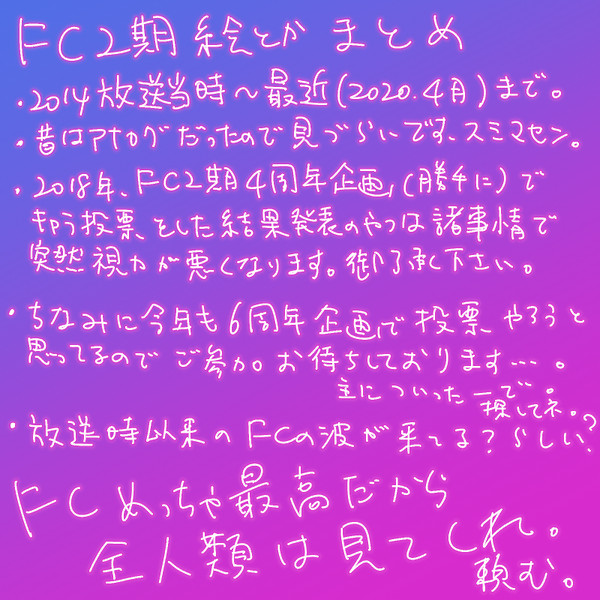 FC2期 絵とか まとめ
・2014放送当時〜最近(2020.4月)まで。
・昔はアナログだったので見づらいです、スミマセン。
・2018年、FC2期4周年企画(勝手に)で
キャラ投票をした結果発表のやつは諸事情で
突然視力が悪くなります。御了承下さい。
・ちなみに今年も6周年企画で投票やろうと
思ってるのでご参加。お待ちしております…。
主についったーで。
探してネ。
・放送時以来のFCの波が来てる？らしい？
FCめっちゃ最高だから
全人類は見てくれ。
頼む。